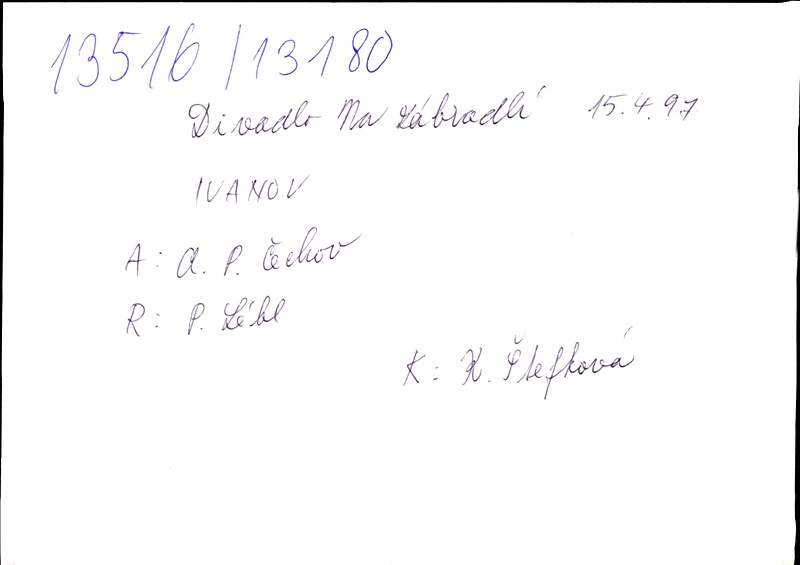 13516/13180
Divadlo Na Zábradlí 15.4.97
IVANOV
A: A. P. Čechov
R: P. Lébl
K: K. Štefková